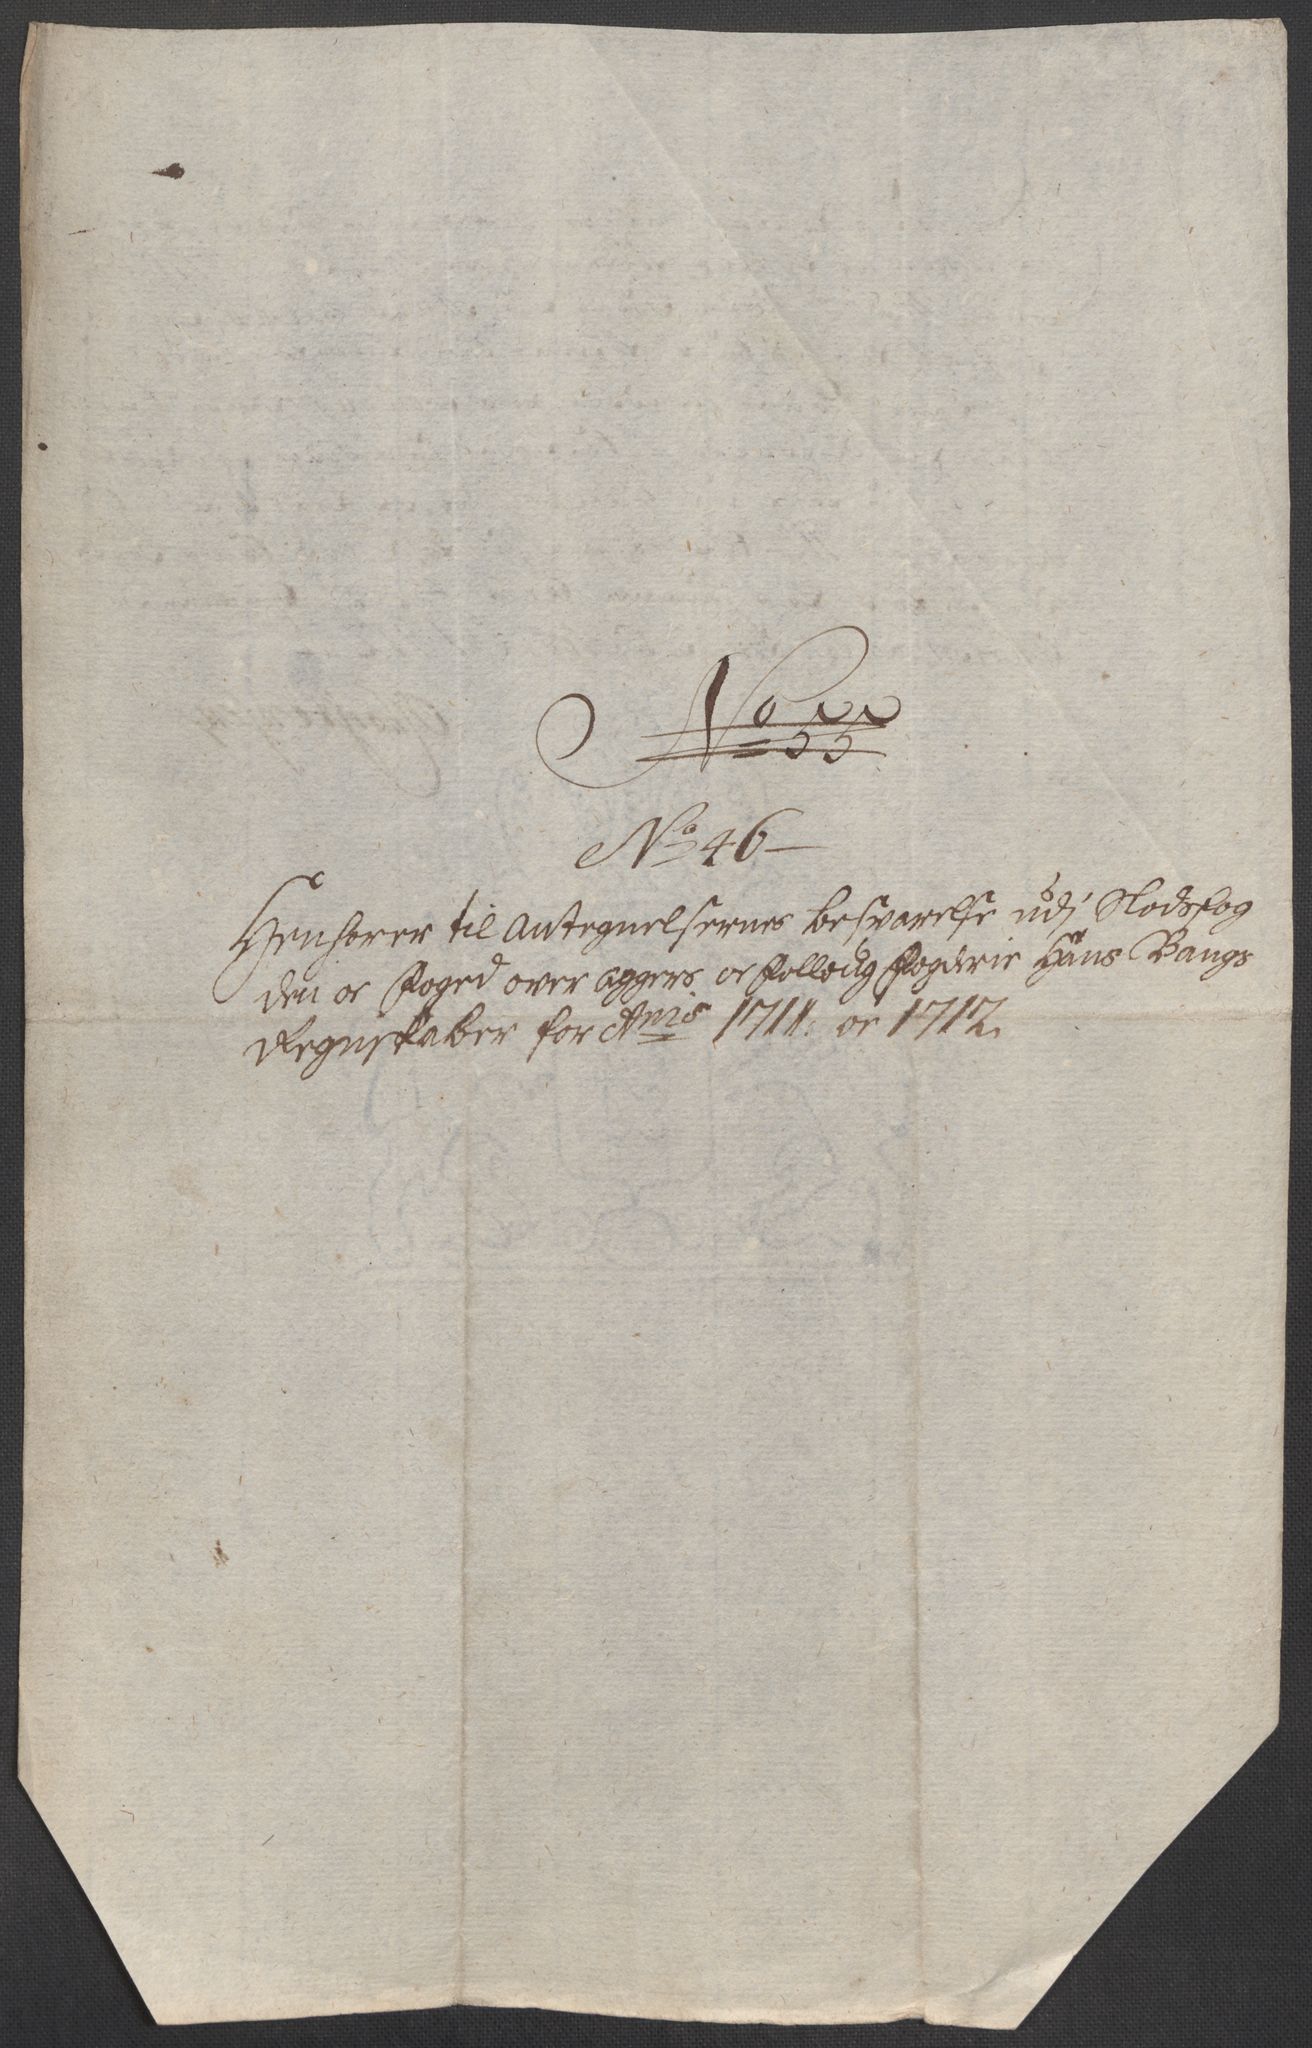 No 55
No 46
Henhører til Antegnelsernes besvarelse udj Slodsfog
den oc Foged over Aggers oc Folloug Fogderie Hans Bangs
Regnskaber for Anis 1711. oc 1712.